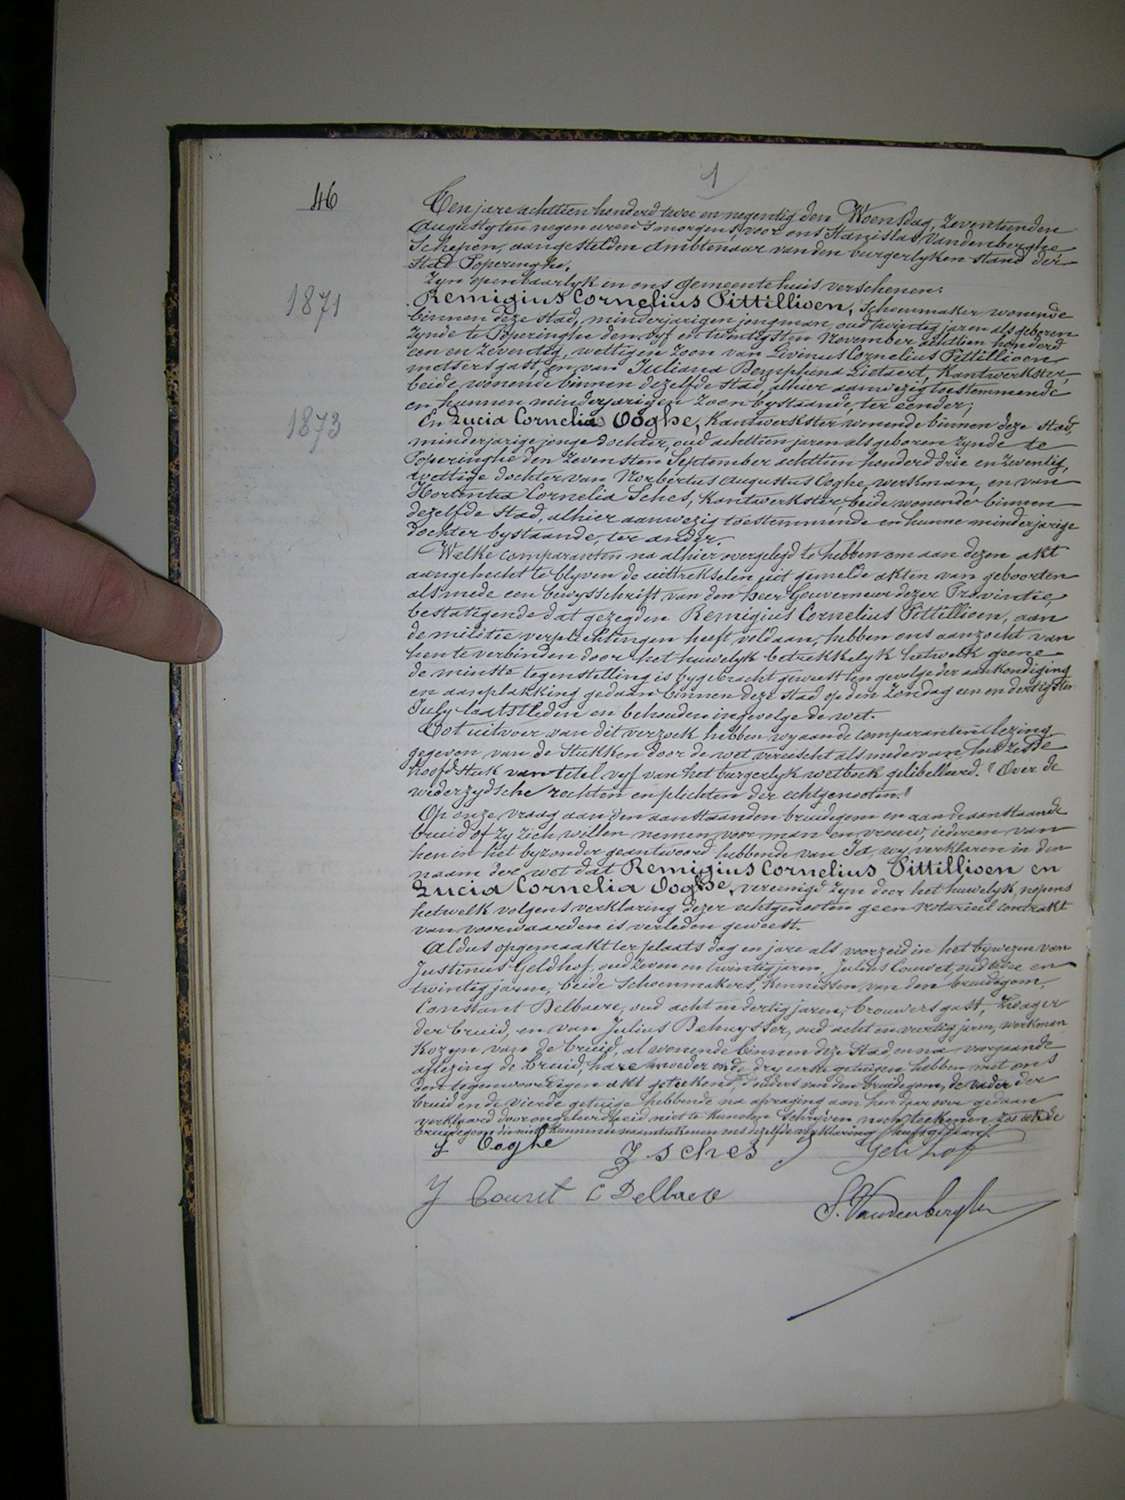 1
46
Ten jare achttien honderd twee en negentig den Woensdag, zeventienden
Augusty ten negen uren 's morgens, voor ons Stanislas Vandenberghe
Schepen, aangestelden Ambtenaar van den burgerlyken stand der
Stad Poperinghe.
Zyn openbaarlyk in ons gemeentehuis verschenen:
1871
Remigius Cornelius Pittillioen, schoenmaker wonende
binnen deze stad, minderjarigen jongman, oud twintig jaren als geboren
zynde te Poperinghe den vyf en twintigsten November achttien honderd
een en zeventig, wettigen zoon van Livinus Cornelius Pittillioen
molsersgast, en van Juliana Pharaildis Lietaert, Kantwerkster,
beide wonende binnen dezelfde stad, alhier aanwezig toestemmende
en hunnen minderjarigen zoon bystaande, ter eender;
1873
En Lucia Cornelia Ooghe, Kantwerkster wonende binnen deze stad,
minderjarige jonge dochter, oud achttien jaren als geboren zynde te
Poperinghe den zevensten September achttien honderd drie en zeventig,
wettige dochter van Norbertus Augustus Ooghe, werkman, en van
Hortentia Cornelia Sches, Kantwerkster, beide wonende binnen
dezelfde stad, alhier aanwezig toestemmende en hunne minderjarige
dochter bystaande, ter ander.
Welke comparanten na alhier overgelegd te hebben om aan dezen akt
aangehecht te blyven de uittrekselen uit gemelde akten van geboorten
als mede een bewysschrift van den Heer Gouverneur dezer Provintie,
bestatigende dat gezegden Remigius Cornelius Pittillioen, aan
de militie verplichtingen heeft voldaan, hebben ons aanzocht van
hen te verbinden door het huwelyk betrekkelyk hetwelk geene
de minste tegenstelling is bygebracht geweest ten gevolge der aankondiging
en aanplakking gedaan binnen deze stad op den zondag een en dertigsten
July laatstleden en behouden ingevolge de wet.
Tot uitvoer van dit verzoek hebben wy aan de comparanten lezing
gegeven van de stukken door de wet vereischt als mede van het zesde
hoofdstuk van titel vyf van het burgerlyk wetboek gelibelleerd. "Over de
wederzydsche rechten en plichten der echtgenooten."
Op onze vraag aan den aanstaanden bruidegom en aan de aanstaande
bruid of zy zich willen nemen voor man en vrouw, iedereen van
hen in het byzonder geantwoord hebbende van Ja, wy verklaren in den
naam der wet dat Remigius Cornelius Pittillioen en
Lucia Cornelia Ooghe, vereenigd zyn door het huwelyk, nopens
hetwelk volgens verklaring dezer echtgenooten geen notarieel contrakt
van voorwaarden is verleden geweest.
Aldus opgemaakt ter plaats dag en jare als voorzeid in het bywezen van
Justinus Geldhof, oud zeven en twintig jaren, Julius Couset, oud twee en
twintig jaren, beide schoenmakers, Kennissen van den bruidegom,
Constant Delbaere, oud acht en dertig jaren, brouwersgast, zwager
der bruid, en van Julius Dehuysser, oud acht en veertig jaren, werkman
Kozyn van de bruid, al wonende binnen deze stad, en na voorgaande
aflezing de bruid, hare moeder en de dry eerste getuigen hebben met ons
den tegenwoordigen akt geteekend, d'ouders van den bruidegom, de vader der
bruid en de vierde getuige hebbende na afvraging aan hen daarover gedaan
verklaard door ongeleerdheid niet te kunnen schryven noch teekenen
L Ooghe
H sches
J Geldhof
J Couset
C Delbaere
S. Vandenberghe